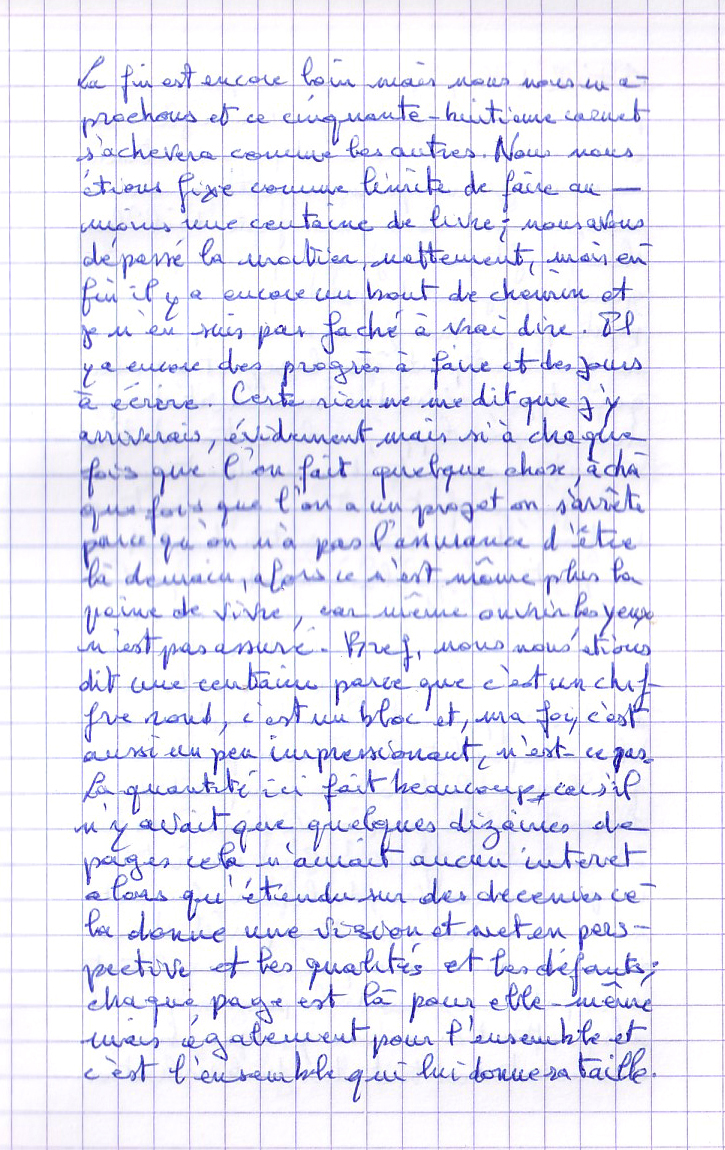 La fin est encore loin mais nous nous en a-
prochons et ce cinquante-huitième carnet
s'achevera comme les autres. Nous nous
étions fixé comme limite de faire au —
moins une centaine de livre; nous avons
dépassé la moitier, nettement, mais en
fin il y a encore un bout de chemin et
je n'en suis pas faché à vrai dire. Il
y a encore des progrès à faire et des jours
à écrire. Certe rien ne me dit que j'y
arriverais, évidement mais si à chaque
fois que l'on fait quelque chose, à cha
que fois que l'on a un projet on s'arrête
parce qu'on n'a pas l'assurance d'être
là demain, alors ce n'est même plus la
peine de vivre, car même ouvrir les yeux
n'est pas assuré. Bref, nous nous étions
dit une centaine parce que c'est un chif-
fre rond, c'est un bloc et, ma foi, c'est
aussi un peu impressionant, n'est-ce pas.
La quantité ici fait beaucoup, car s'il
n'y avait que quelques dizaines de
pages cela n'aurait aucun interet
alors qu'étendu sur des decenies ce-
la donne une vision et met en pers-
pective et les qualités et les défauts;
chaque page est là pour elle-même
mais également pour l'ensemble et
c'est l'ensemble qui lui donne sa taille.